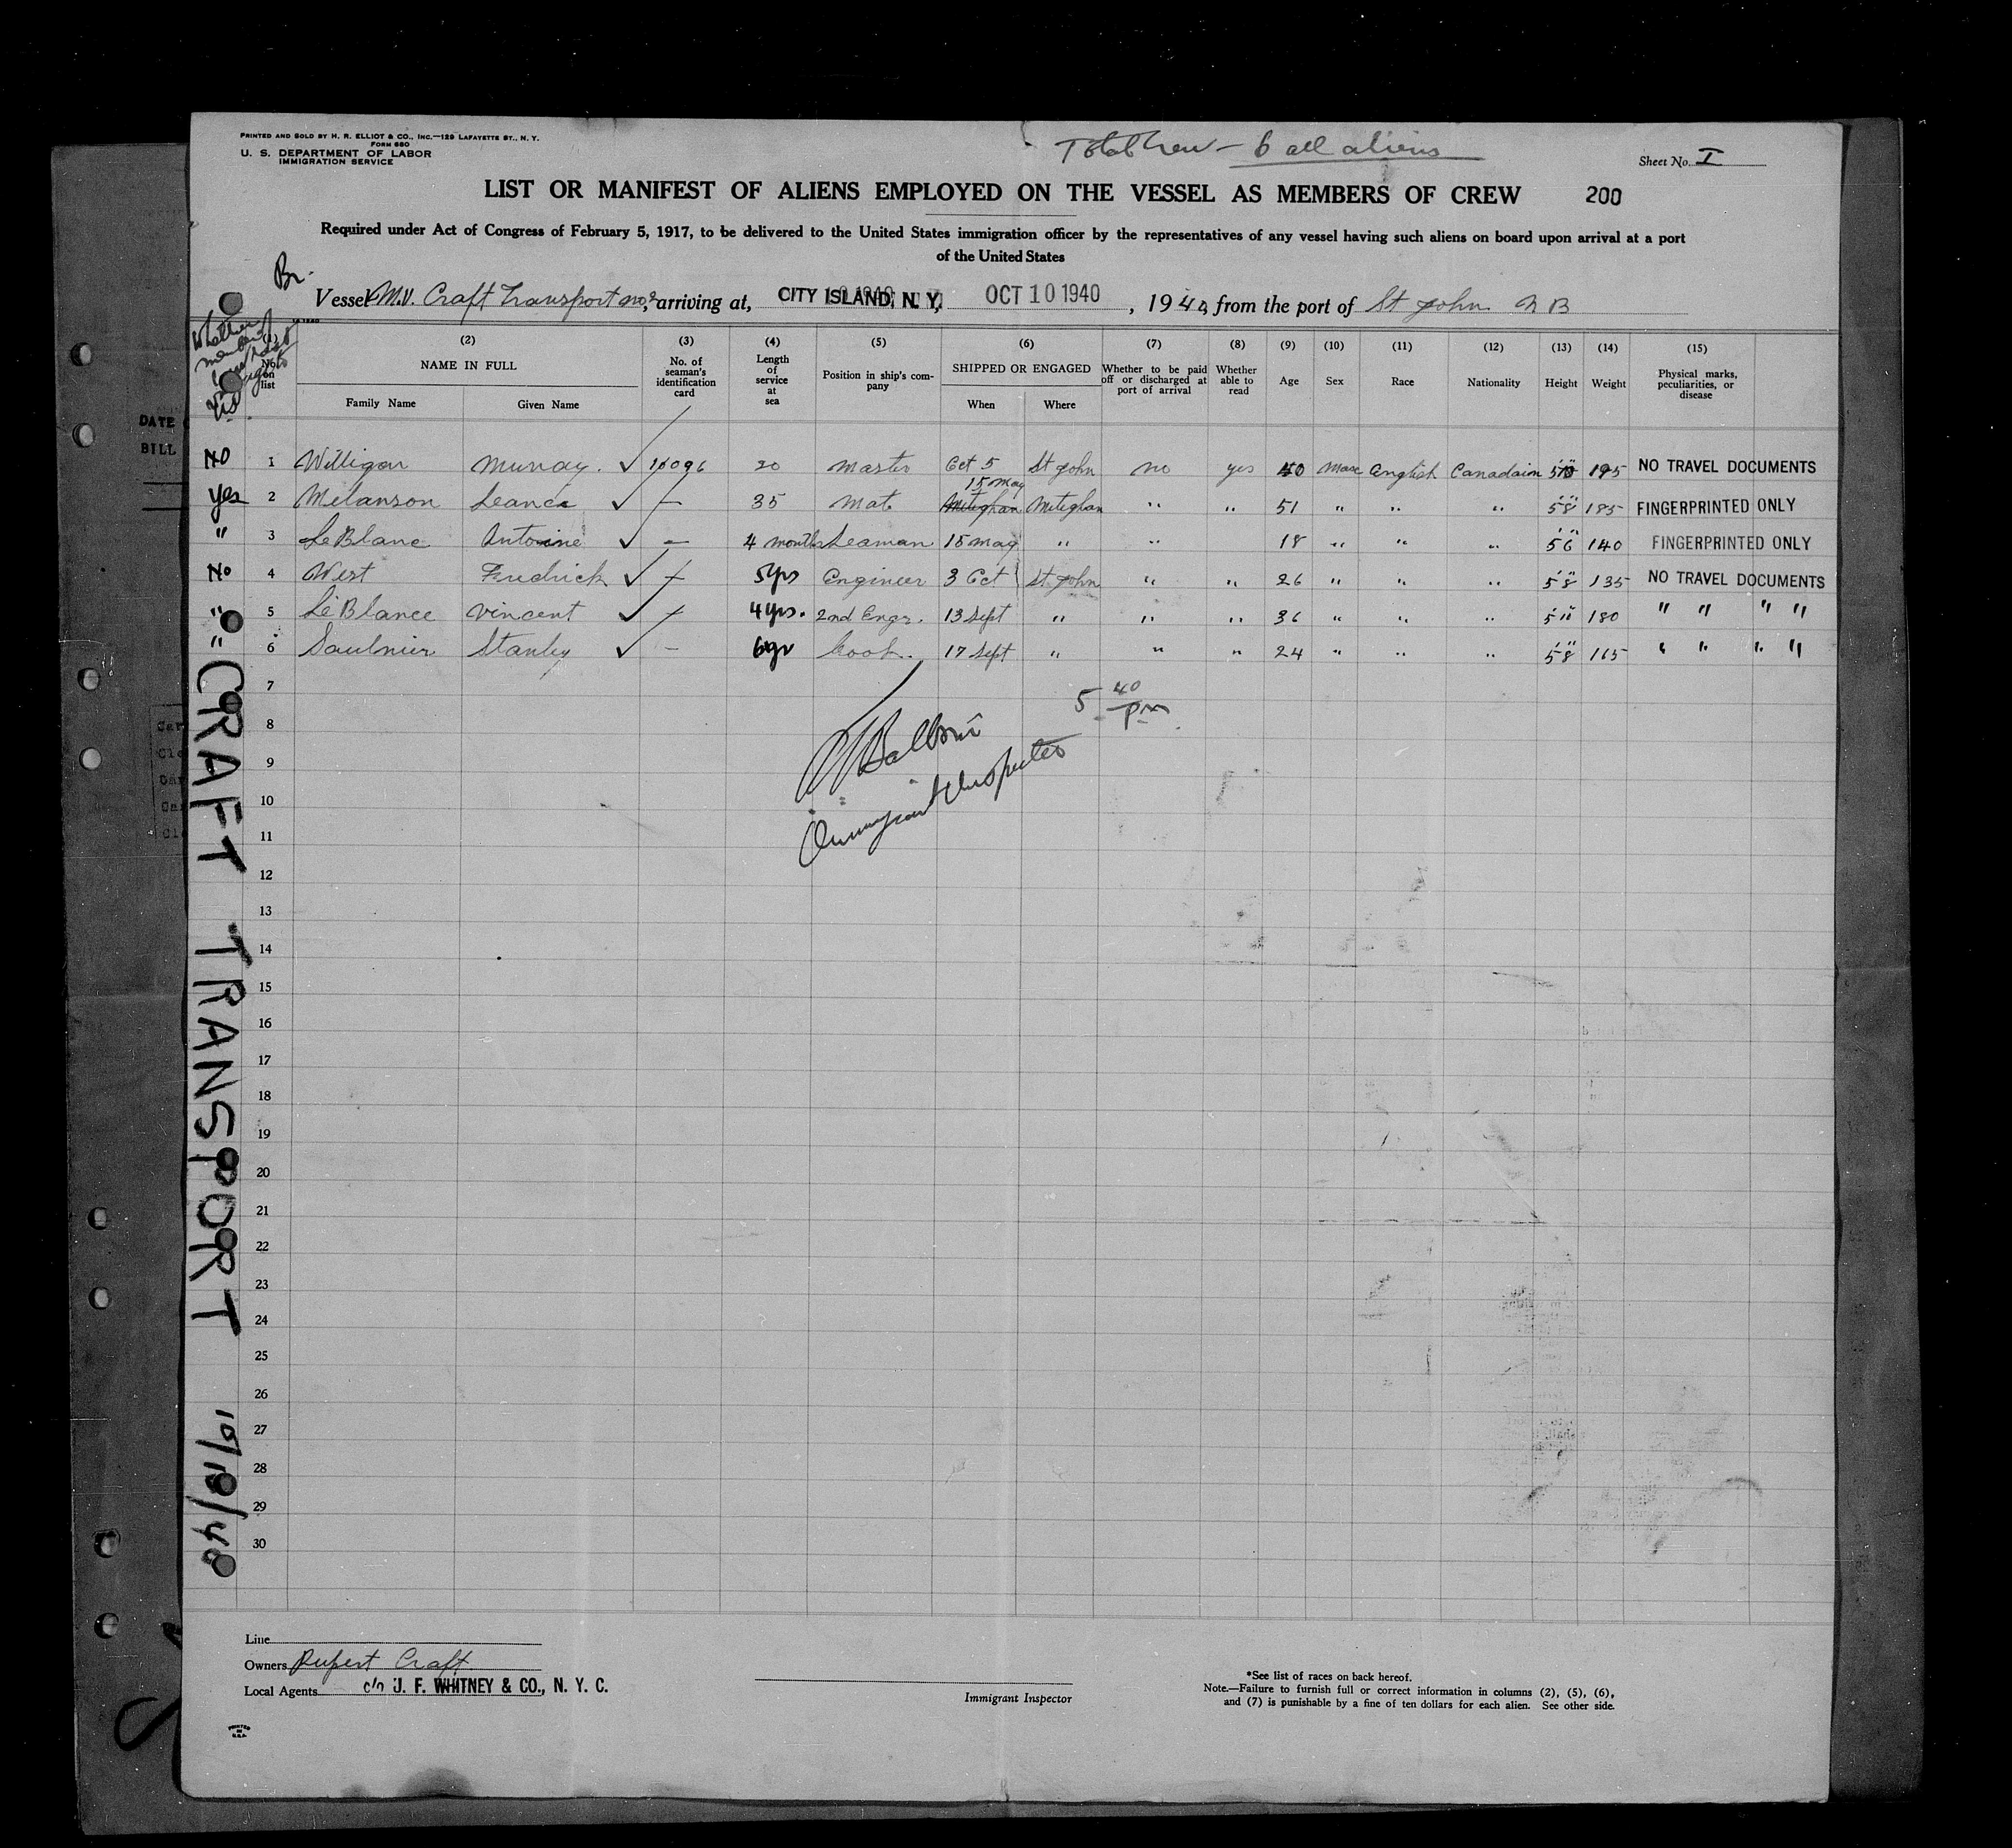 PRINTED AND SOLD BY H. R. ELLIOT & CO., INC.—129 LAFAYETTE ST., N. Y.
FORM 680
U. S. DEPARTMENT OF LABOR
IMMIGRATION SERVICE
Total Crew - 6 all aliens
Sheet No. I
LIST OR MANIFEST OF ALIENS EMPLOYED ON THE VESSEL AS MEMBERS OF CREW 200
Required under Act of Congress of February 5, 1917, to be delivered to the United States immigration officer by the representatives of any vessel having such aliens on board upon arrival at a port
of the United States
Br.
Vessel M.V. Craft Transport no 2, arriving at, CITY ISLAND, N. Y, OCT 10 1940, 1940, from the port of St John N B
Whether member
(1) No. on list
(2) NAME IN FULL Family Name Given Name
(3) No. of seaman's identification card
(4) Length of service at sea
(5) Position in ship's company
(6) SHIPPED OR ENGAGED When Where
(7) Whether to be paid off or discharged at port of arrival
(8) Whether able to read
(9) Age
(10) Sex
(11) Race
(12) Nationality
(13) Height
(14) Weight
(15) Physical marks, peculiarities, or disease
No 1 Willigar Murray. ✓ 16096 20 Master Oct 5 St John no yes 40 Male English Canadain 5 10 195 NO TRAVEL DOCUMENTS
15 May
yes 2 Melanson Leance ✓ — 35 Mate Meteghan Meteghan " " 51 " " " 5 8 185 FINGERPRINTED ONLY
" 3 LeBlanc Antoine ✓ — 4 months Seaman 15 May " " 18 " " " 5 6 140 FINGERPRINTED ONLY
No 4 West Fredrick ✓ — 5yrs Engineer 3 Oct St John " " 26 " " " 5 8 135 NO TRAVEL DOCUMENTS
" 5 LeBlance Vincent ✓ — 4yrs. 2nd Engr. 13 Sept " " " 36 " " " 5 11 180 " " " "
" 6 Saulnier Stanley ✓ — 6yr Cook. 17 Sept " " " 24 " " " 5 8 165 " " " "
7
5 40 pm
8
9
Immigrant Inspector
10
11
12
13
14
15
16
17
18
19
20
21
22
23
24
25
26
27
28
29
30
CRAFT TRANSPORT 10/10/40
Line
Owners Rupert Craft
Local Agents c/o J. F. WHITNEY & CO., N. Y. C.
Immigrant Inspector
*See list of races on back hereof.
Note.—Failure to furnish full or correct information in columns (2), (5), (6),
and (7) is punishable by a fine of ten dollars for each alien. See other side.
PRINTED IN U.S.A.
DATE
BILL